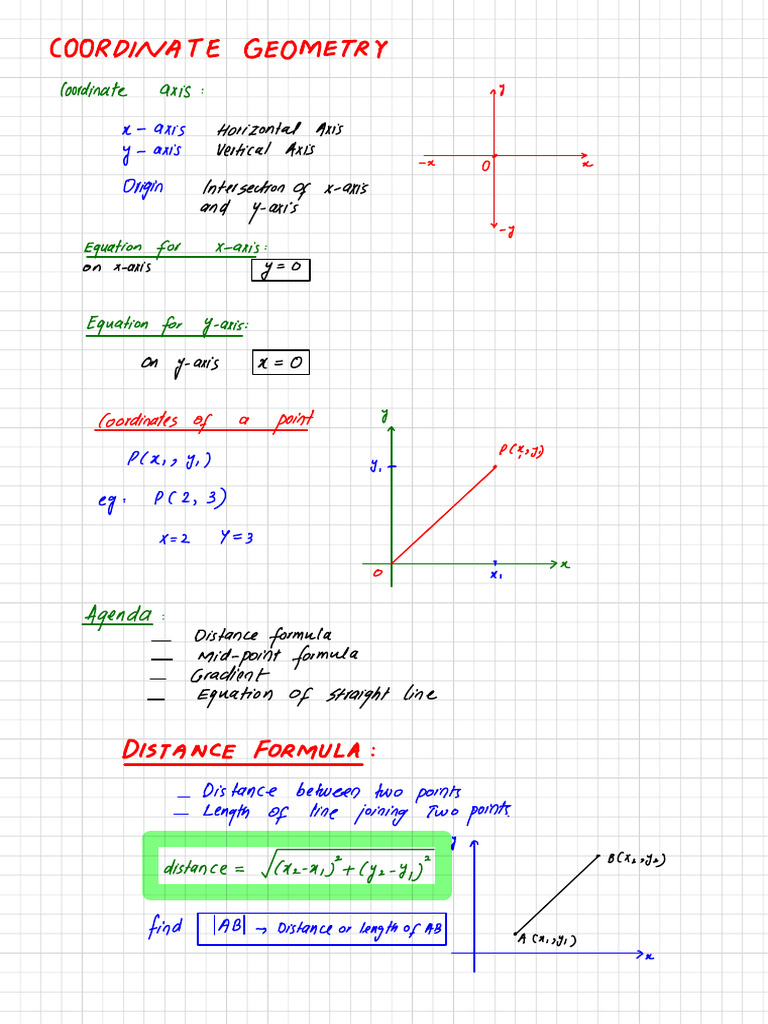 COORDINATE GEOMETRY
Coordinate axis :
x - axis Horizontal Axis
y - axis Vertical Axis
Origin Intersection of x-axis
and y-axis
y
-x
O
x
-y
Equation for x-axis:
on x-axis y = 0
Equation for y-axis:
on y-axis x = 0
Coordinates of a point
P(x₁, y₁)
eg. P(2, 3)
x=2 Y=3
y
P(x₁, y₁)
y₁
O
x₁
x
Agenda :
— Distance formula
— Mid-point formula
— Gradient
— Equation of straight line
DISTANCE FORMULA :
— Distance between two points
— Length of line joining Two points.
distance = √(x₂-x₁)² + (y₂-y₁)²
find |AB| → Distance or length of AB
y
B(x₂, y₂)
A (x₁, y₁)
x